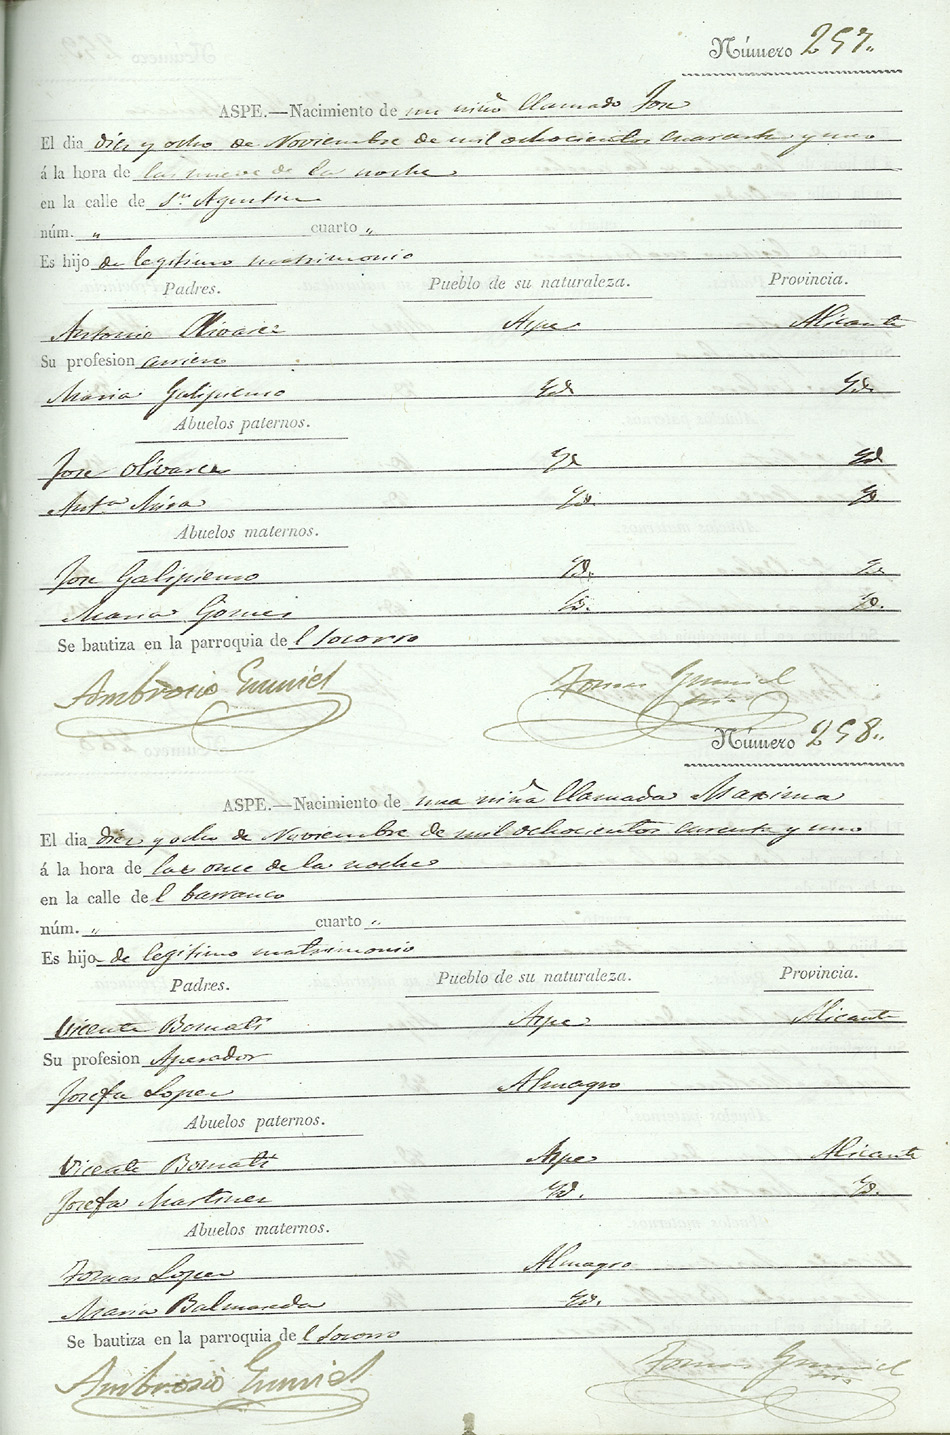 Número 257.
ASPE.—Nacimiento de un niño llamado Jose
El dia diez y ocho de Noviembre de mil ochocientos cuarenta y uno
á la hora de las nueve de la noche
en la calle de Sn Agustin
núm. " cuarto "
Es hijo de legitimo matrimonio
Padres. Pueblo de su naturaleza. Provincia.
Antonio Olivares Aspe Alicante
Su profesion arriero
Maria Galipienso Yd. Yd.
Abuelos paternos.
Jose Olivares Yd Yd
Anta Mira Yd. Yd.
Abuelos maternos.
Jose Galipienso Yd. Yd.
Maria Gomis Yd. Yd.
Se bautiza en la parroquia del Socorro
Ambrosio Tomas
Número 258.
ASPE.—Nacimiento de una niña llamada Maxima
El dia diez y ocho de Noviembre de mil ochocientos curenta y uno
á la hora de las once de la noche
en la calle del barranco
núm. " cuarto "
Es hijo de legitimo matrimonio
Padres. Pueblo de su naturaleza. Provincia.
Vicente Bornati Aspe Alicante
Su profesion Aperador
Josefa Lopez Almagro
Abuelos paternos.
Vicente Bornati Aspe Alicante
Josefa Martinez Yd. Yd.
Abuelos maternos.
Tomas Lopez Almagro
Maria Balmaseda Yd.
Se bautiza en la parroquia del Socorro
Ambrosio Tomas